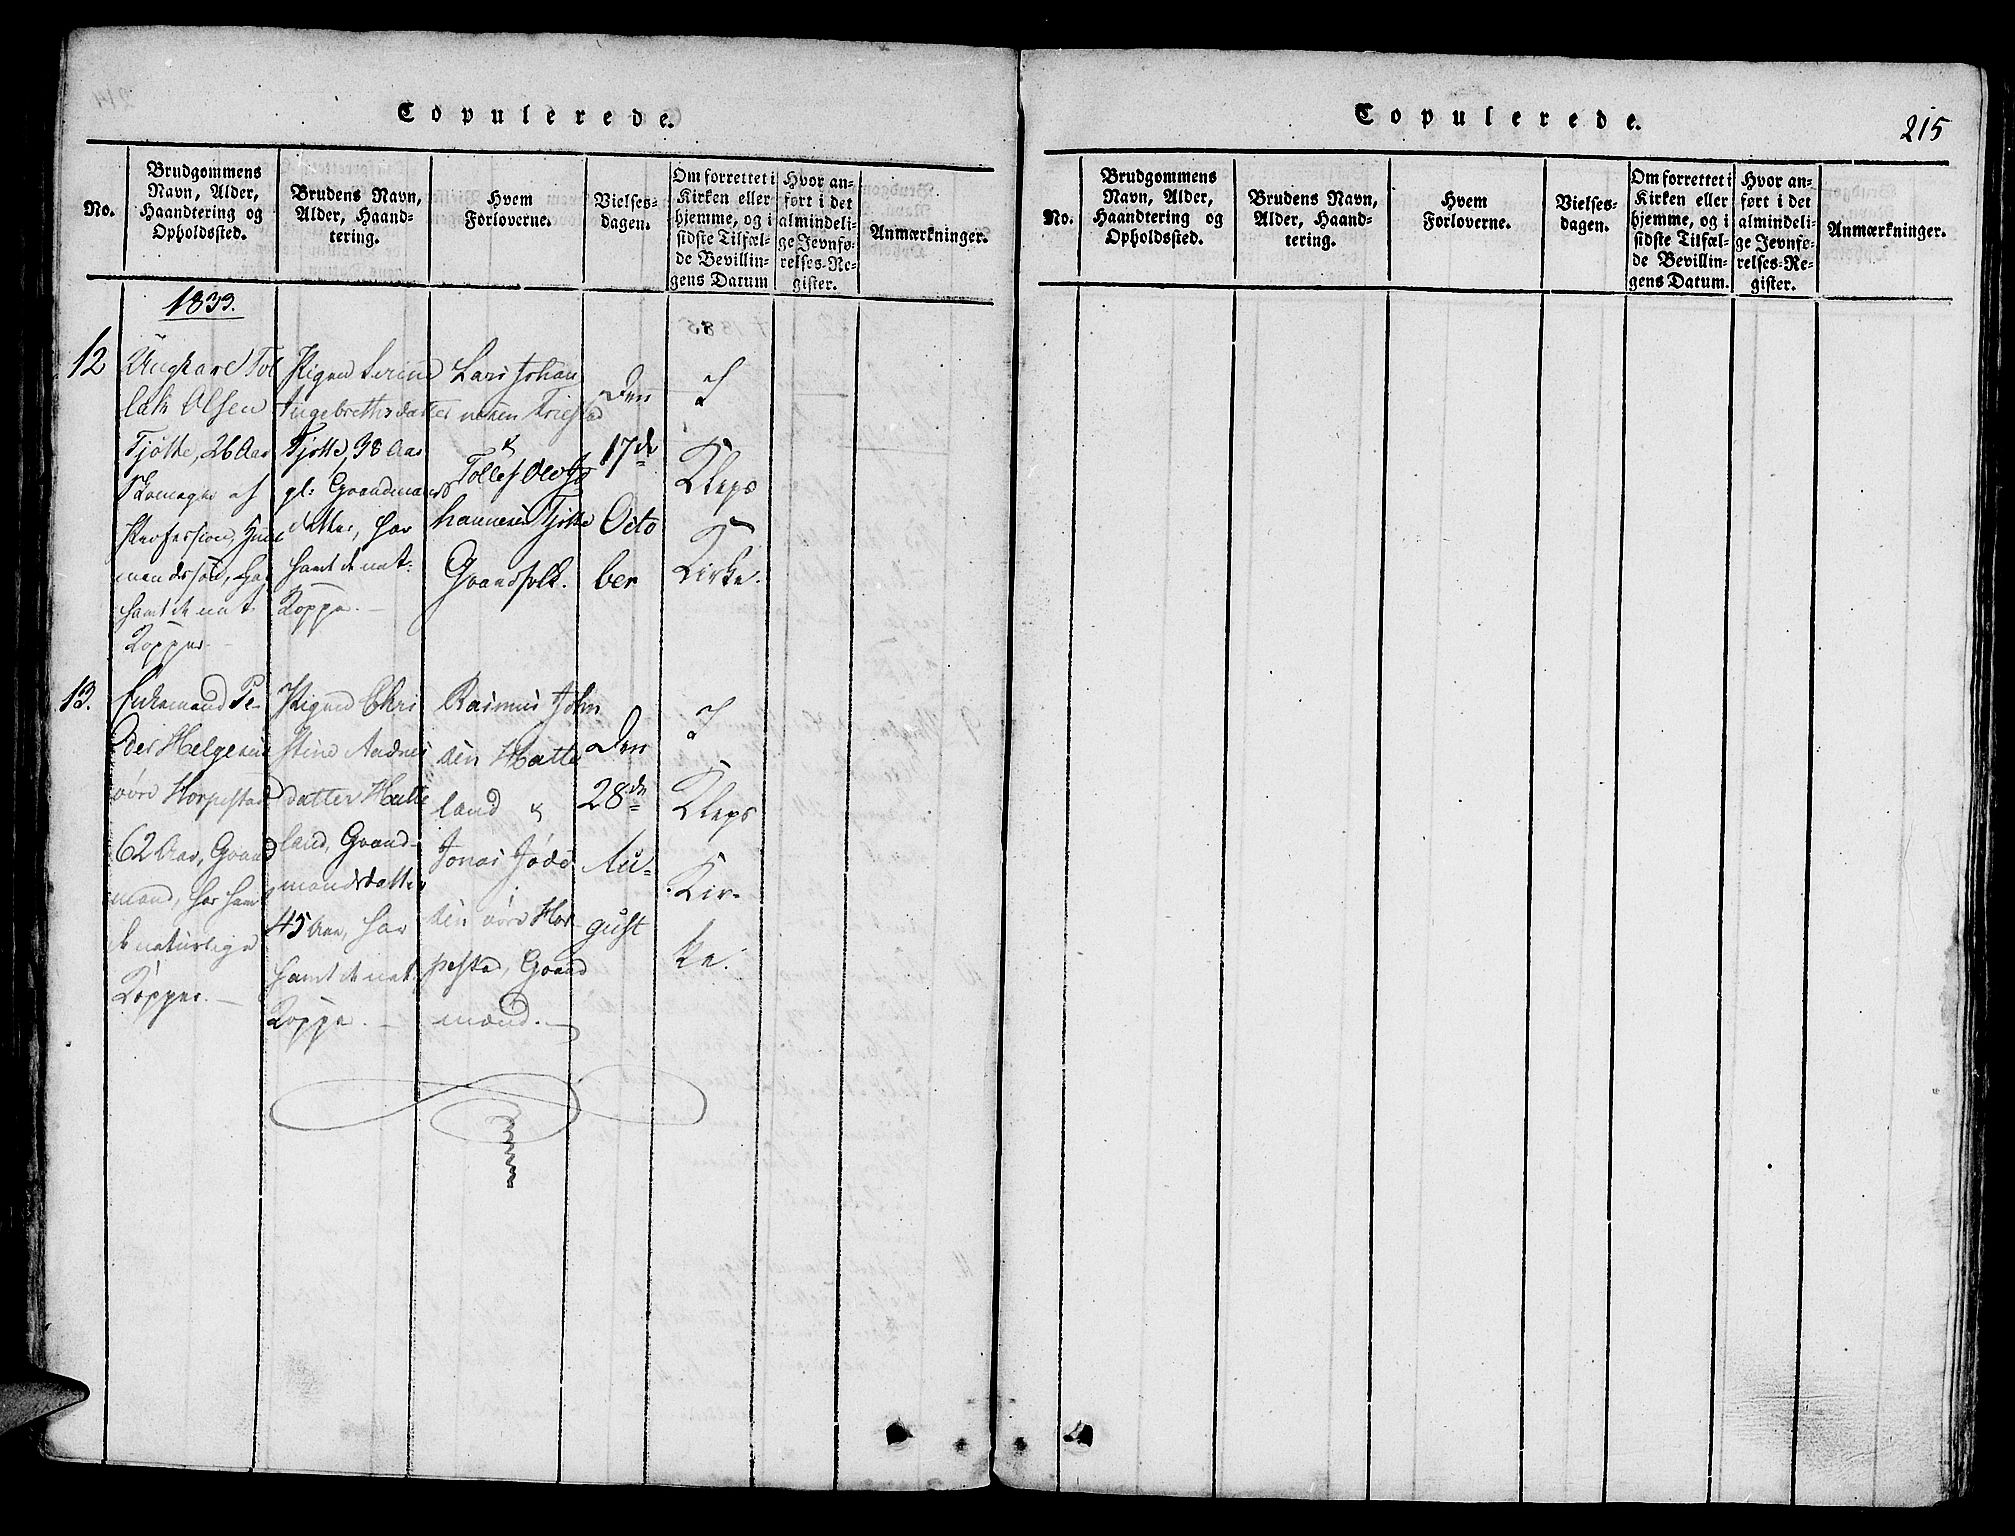 Copulerede.
No.
Brudgommens
Navn, Alder,
Haandtering og
Opholdssted.
Brudens Navn,
Alder, Haand-
tering.
Hvem
Forloverne.
Vielses-
dagen.
Om forrettet i
Kirken eller
hjemme, og i
sidste Tilfæl-
de Bevillin-
gens Datum
Hvor an-
ført i det
almindeli-
ge Jevnfø-
relses-Re-
gister.
Anmærkninger.
1833.
12
Ungkarl Tol
lak Olsen
Tjøtte, 26 Aar
Skomager af
Profession, Huus
mandssøn, har
havt de nat
Kopper.
Pigen Serine
Ingebrethsdatter
Tjøtte, 38 Aar
gl: Gaardmands
datter, har
havt de nat:
Kopper. —
Lars Johan
nesen Friestad
&
Tollef Ols Jo
hannesen Tjøtte
Gaardfolk.
Den
17de
Octo
ber
I
Kleps
Kirke.
13.
Enkemand Pe-
der Helgesen
øvre Horpestad
62 Aar, Gaard
mand, har havt
de naturlige
Kopper. —
Pigen Chri
stine Aadnes
datter Hatte
land, Gaard-
mandsdatter
45 Aar, har
havt de nat
Kopper. —
Rasmus John
sen Hatte
land &
Jonas Jøde
sen øvre Hor-
pestad, Gaard
mænd. —
Den
28de
Au-
gust
I
Kleps
Kir-
ke.
Copulerede.
215
No.
Brudgommens
Navn, Alder,
Haandtering og
Opholdssted.
Brudens Navn,
Alder, Haand-
tering.
Hvem
Forloverne.
Vielses-
dagen.
Om forrettet i
Kirken eller
hjemme, og i
sidste Tilfæl-
de Bevillin-
gens Datum.
Hvor an-
ført i det
almindeli-
ge Jevnfø-
relses-Re-
gister.
Anmærkninger.